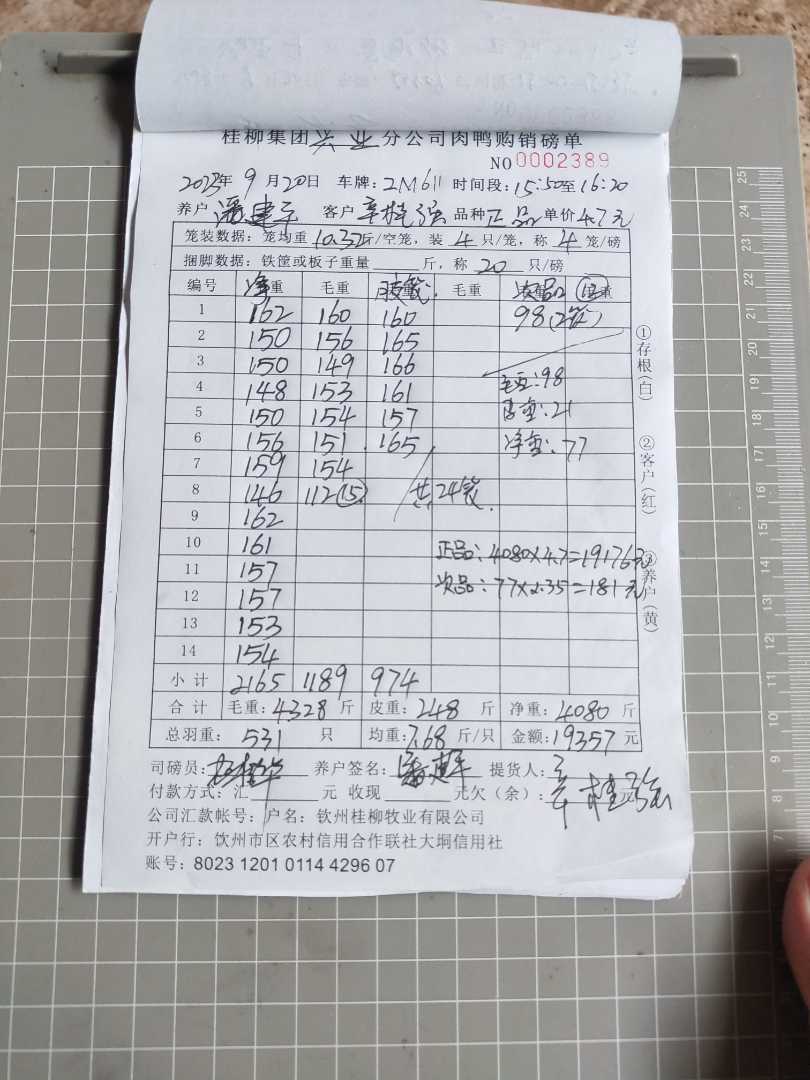 桂柳集团兴业分公司肉鸭购销磅单
NO 0002389
2023年 9月20日 车牌:2M611 时间段:15:50至16:20
养户 客户 辛桂强 品种 正品 单价 4.7元
笼装数据:笼均重 10.32斤/空笼,装 4 只/笼,称 4 笼/磅
捆脚数据:铁筐或板子重量 斤,称 20 只/磅
编号 净重 毛重 毛重 次品 重
1 162 160 160 98(2笼)
2 150 156 165
3 150 149 166 毛重:98
4 148 153 161 皮重:21
5 150 154 157
6 156 151 165 净重:77
7 159 154
8 146 112(15) 共24笼
9 162
10 161 正品:4080×4.7=19176元
11 157
12 157 次品:77×2.35=181元
13 153
14 154
小计 2165 1189 974
合计 毛重:4328斤 皮重:248斤 净重:4080斤
总羽重:531只 均重:7.68斤/只 金额:19357元
司磅员: 养户签名: 提货人:辛桂强
付款方式:汇 元 收现 元欠(余): 元
公司汇款帐号:户名:钦州桂柳牧业有限公司
开户行:饮州市区农村信用合作联社大垌信用社
账号:8023 1201 0114 4296 07
①存根(白)
②客户(红)
③养户(黄)
25
20
19
18
17
16
15
14
13
12
11
10
9
8
7
6
5